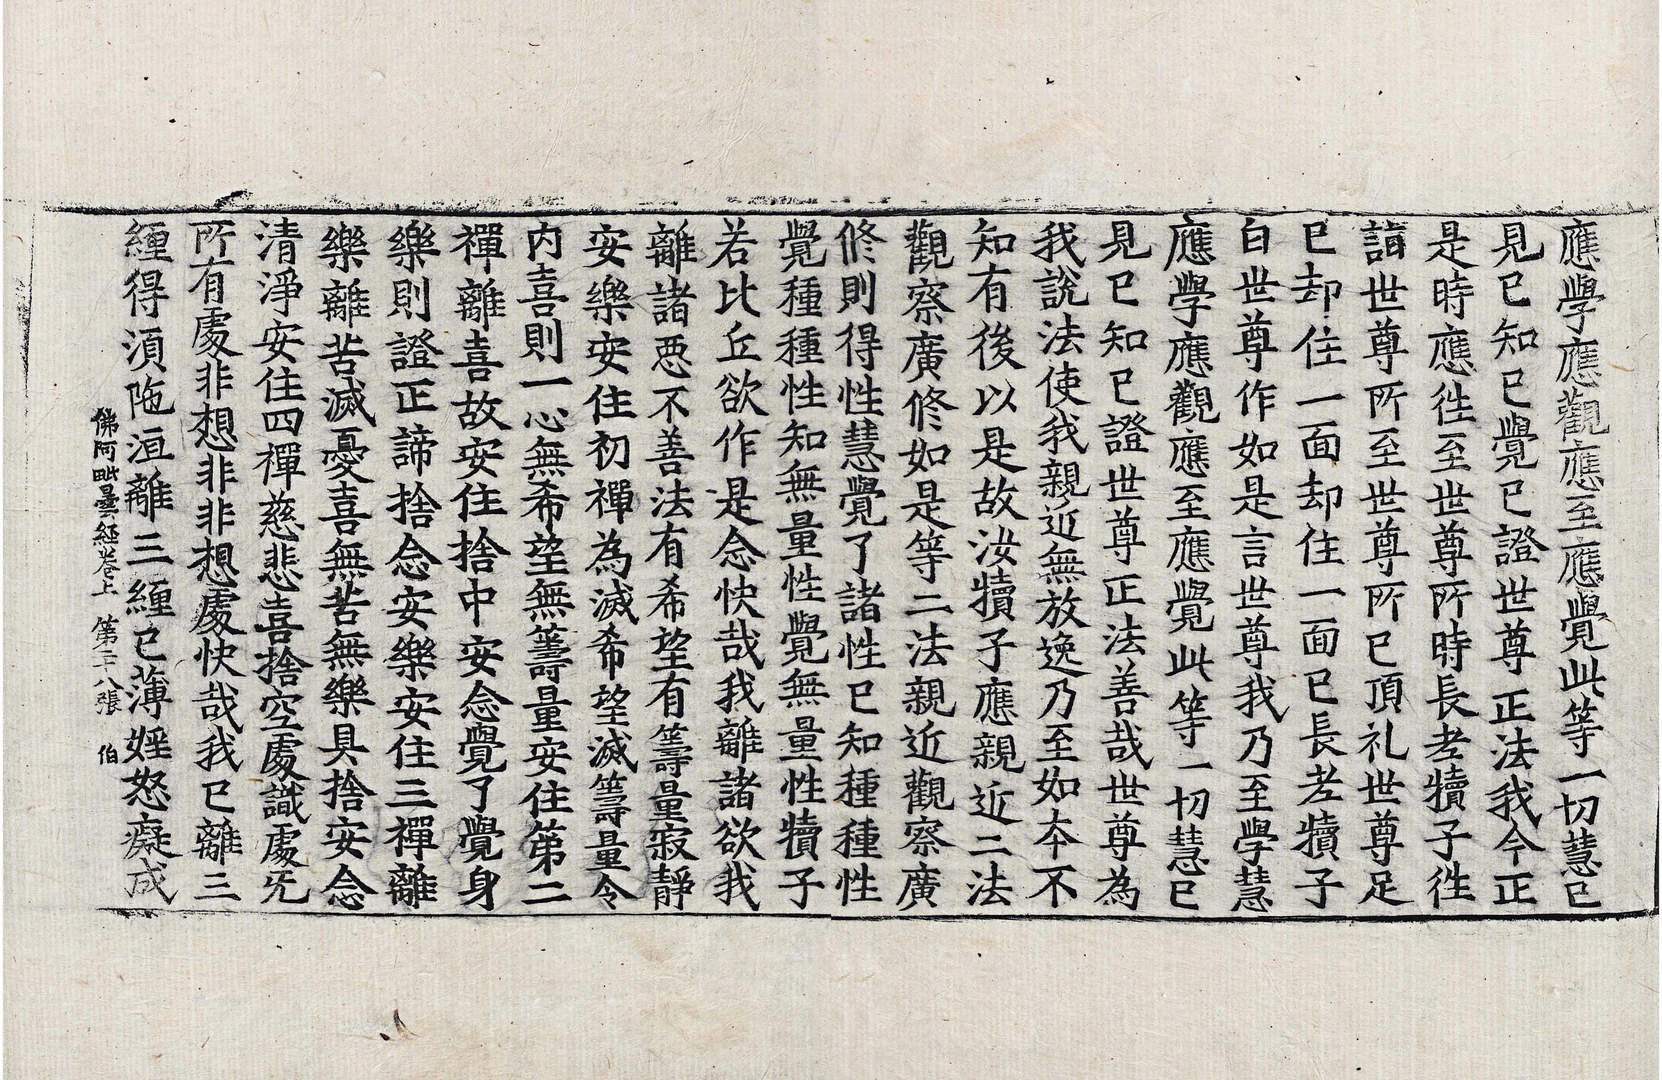 應學應觀應至應覺此等一切慧已
見已知已覺已證世尊正法我今正
是時應徃至世尊所時長老犢子徃
詣世尊所至世尊所已頂礼世尊足
已却住一面却住一面已長老犢子
白世尊作如是言世尊我乃至學慧
應學應觀應至應覺此等一切慧已
見已知已證世尊正法善哉世尊為
我說法使我親近無放逸乃至如本不
知有後以是故汝犢子應親近二法
觀察廣修如是等二法親近觀察廣
修則得性慧覺了諸性已知種種性
覺種種性知無量性覺無量性犢子
若比丘欲作是念快哉我離諸欲我
離諸惡不善法有希望有籌量寂靜
安樂安住初禪為滅希望滅籌量令
内喜則一心無希望無籌量安住第二
禪離喜故安住捨中安念覺了覺身
樂則證正諦捨念安樂安住三禪離
樂離苦滅憂喜無苦無樂具捨安念
清淨安住四禪慈悲喜捨空處識處旡
所有處非想非非想處快哉我已離三
緾得湏陁洹離三緾已薄婬怒癡成
佛阿毗曇経卷上 第二十八張 伯